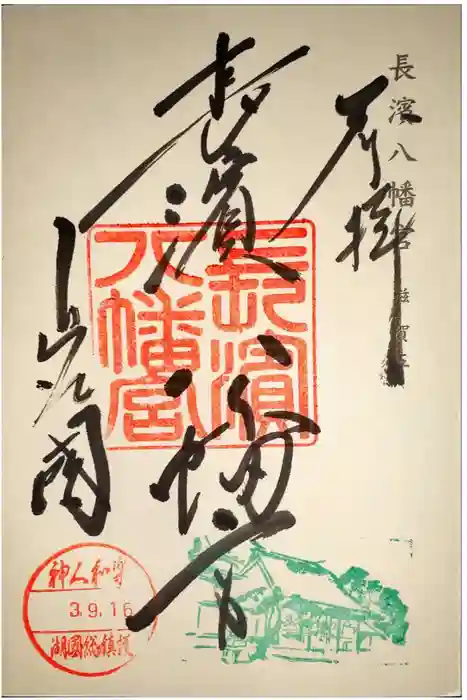 長濱八幡宮 滋賀県
奉拝
長濱八幡宮
長濱
八幡宮
神人和楽
3.9.16
湖國総鎮護